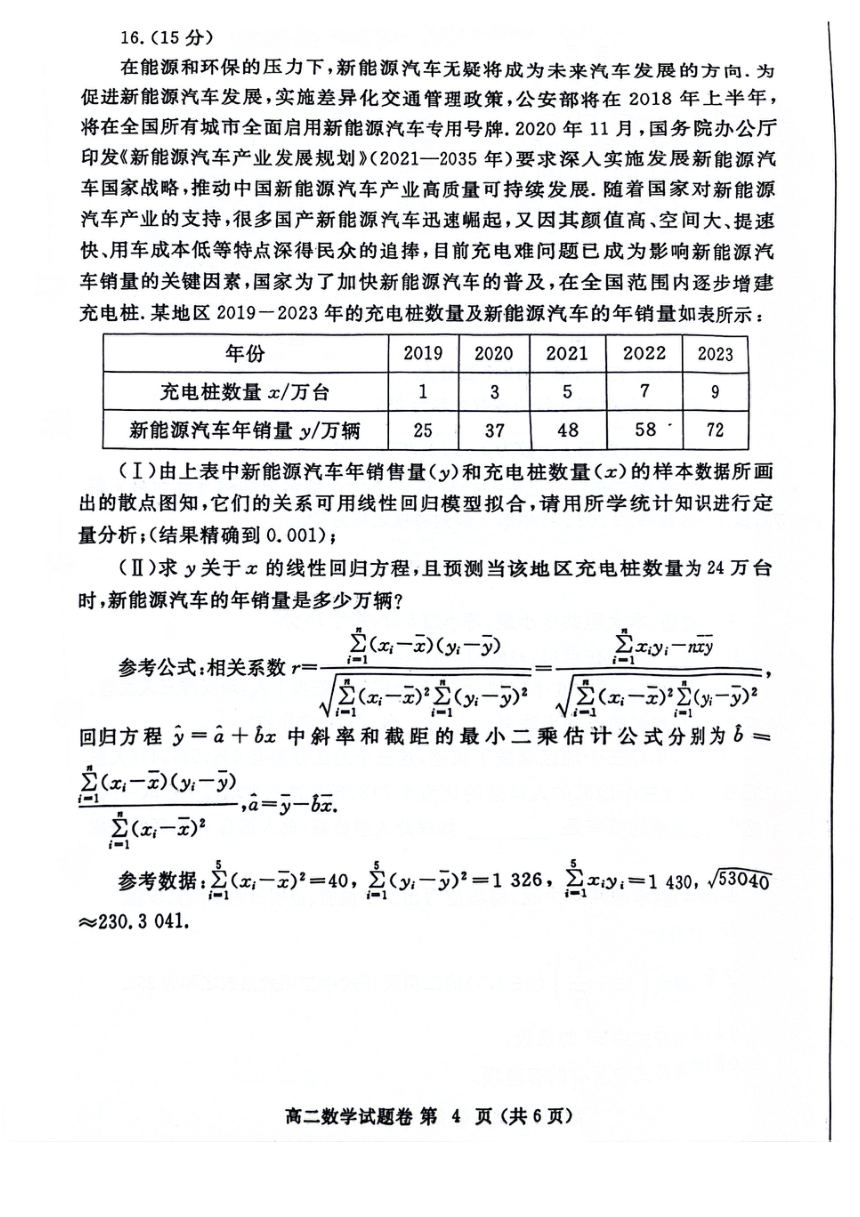 16.(15 分)
在能源和环保的压力下,新能源汽车无疑将成为未来汽车发展的方向.为
促进新能源汽车发展,实施差异化交通管理政策,公安部将在 2018 年上半年,
将在全国所有城市全面启用新能源汽车专用号牌.2020 年 11 月,国务院办公厅
印发《新能源汽车产业发展规划》(2021—2035 年)要求深入实施发展新能源汽
车国家战略,推动中国新能源汽车产业高质量可持续发展.随着国家对新能源
汽车产业的支持,很多国产新能源汽车迅速崛起,又因其颜值高、空间大、提速
快、用车成本低等特点深得民众的追捧,目前充电难问题已成为影响新能源汽
车销量的关键因素,国家为了加快新能源汽车的普及,在全国范围内逐步增建
充电桩.某地区 2019-2023 年的充电桩数量及新能源汽车的年销量如表所示:
年份 2019 2020 2021 2022 2023
充电桩数量 x/万台 1 3 5 7 9
新能源汽车年销量 y/万辆 25 37 48 58 72
(Ⅰ)由上表中新能源汽车年销售量(y)和充电桩数量(x)的样本数据所画
出的散点图知,它们的关系可用线性回归模型拟合,请用所学统计知识进行定
量分析;(结果精确到 0.001);
(Ⅱ)求 y 关于 x 的线性回归方程,且预测当该地区充电桩数量为 24 万台
时,新能源汽车的年销量是多少万辆?
参考公式:相关系数 r=∑(i=1→n)(xᵢ-x̄)(yᵢ-ȳ)/√(∑(i=1→n)(xᵢ-x̄)²∑(i=1→n)(yᵢ-ȳ)²)=(∑(i=1→n)xᵢyᵢ-nx̄ȳ)/√(∑(i=1→n)(xᵢ-x̄)²∑(i=1→n)(yᵢ-ȳ)²),
回归方程 ŷ=â+b̂x 中斜率和截距的最小二乘估计公式分别为 b̂=
∑(i=1→n)(xᵢ-x̄)(yᵢ-ȳ)/∑(i=1→n)(xᵢ-x̄)²,â=ȳ-b̂x̄.
参考数据:∑(i=1→5)(xᵢ-x̄)²=40,∑(i=1→5)(yᵢ-ȳ)²=1 326,∑(i=1→5)xᵢyᵢ=1 430,√53040
≈230.3 041.
高二数学试题卷 第 4 页(共 6 页)